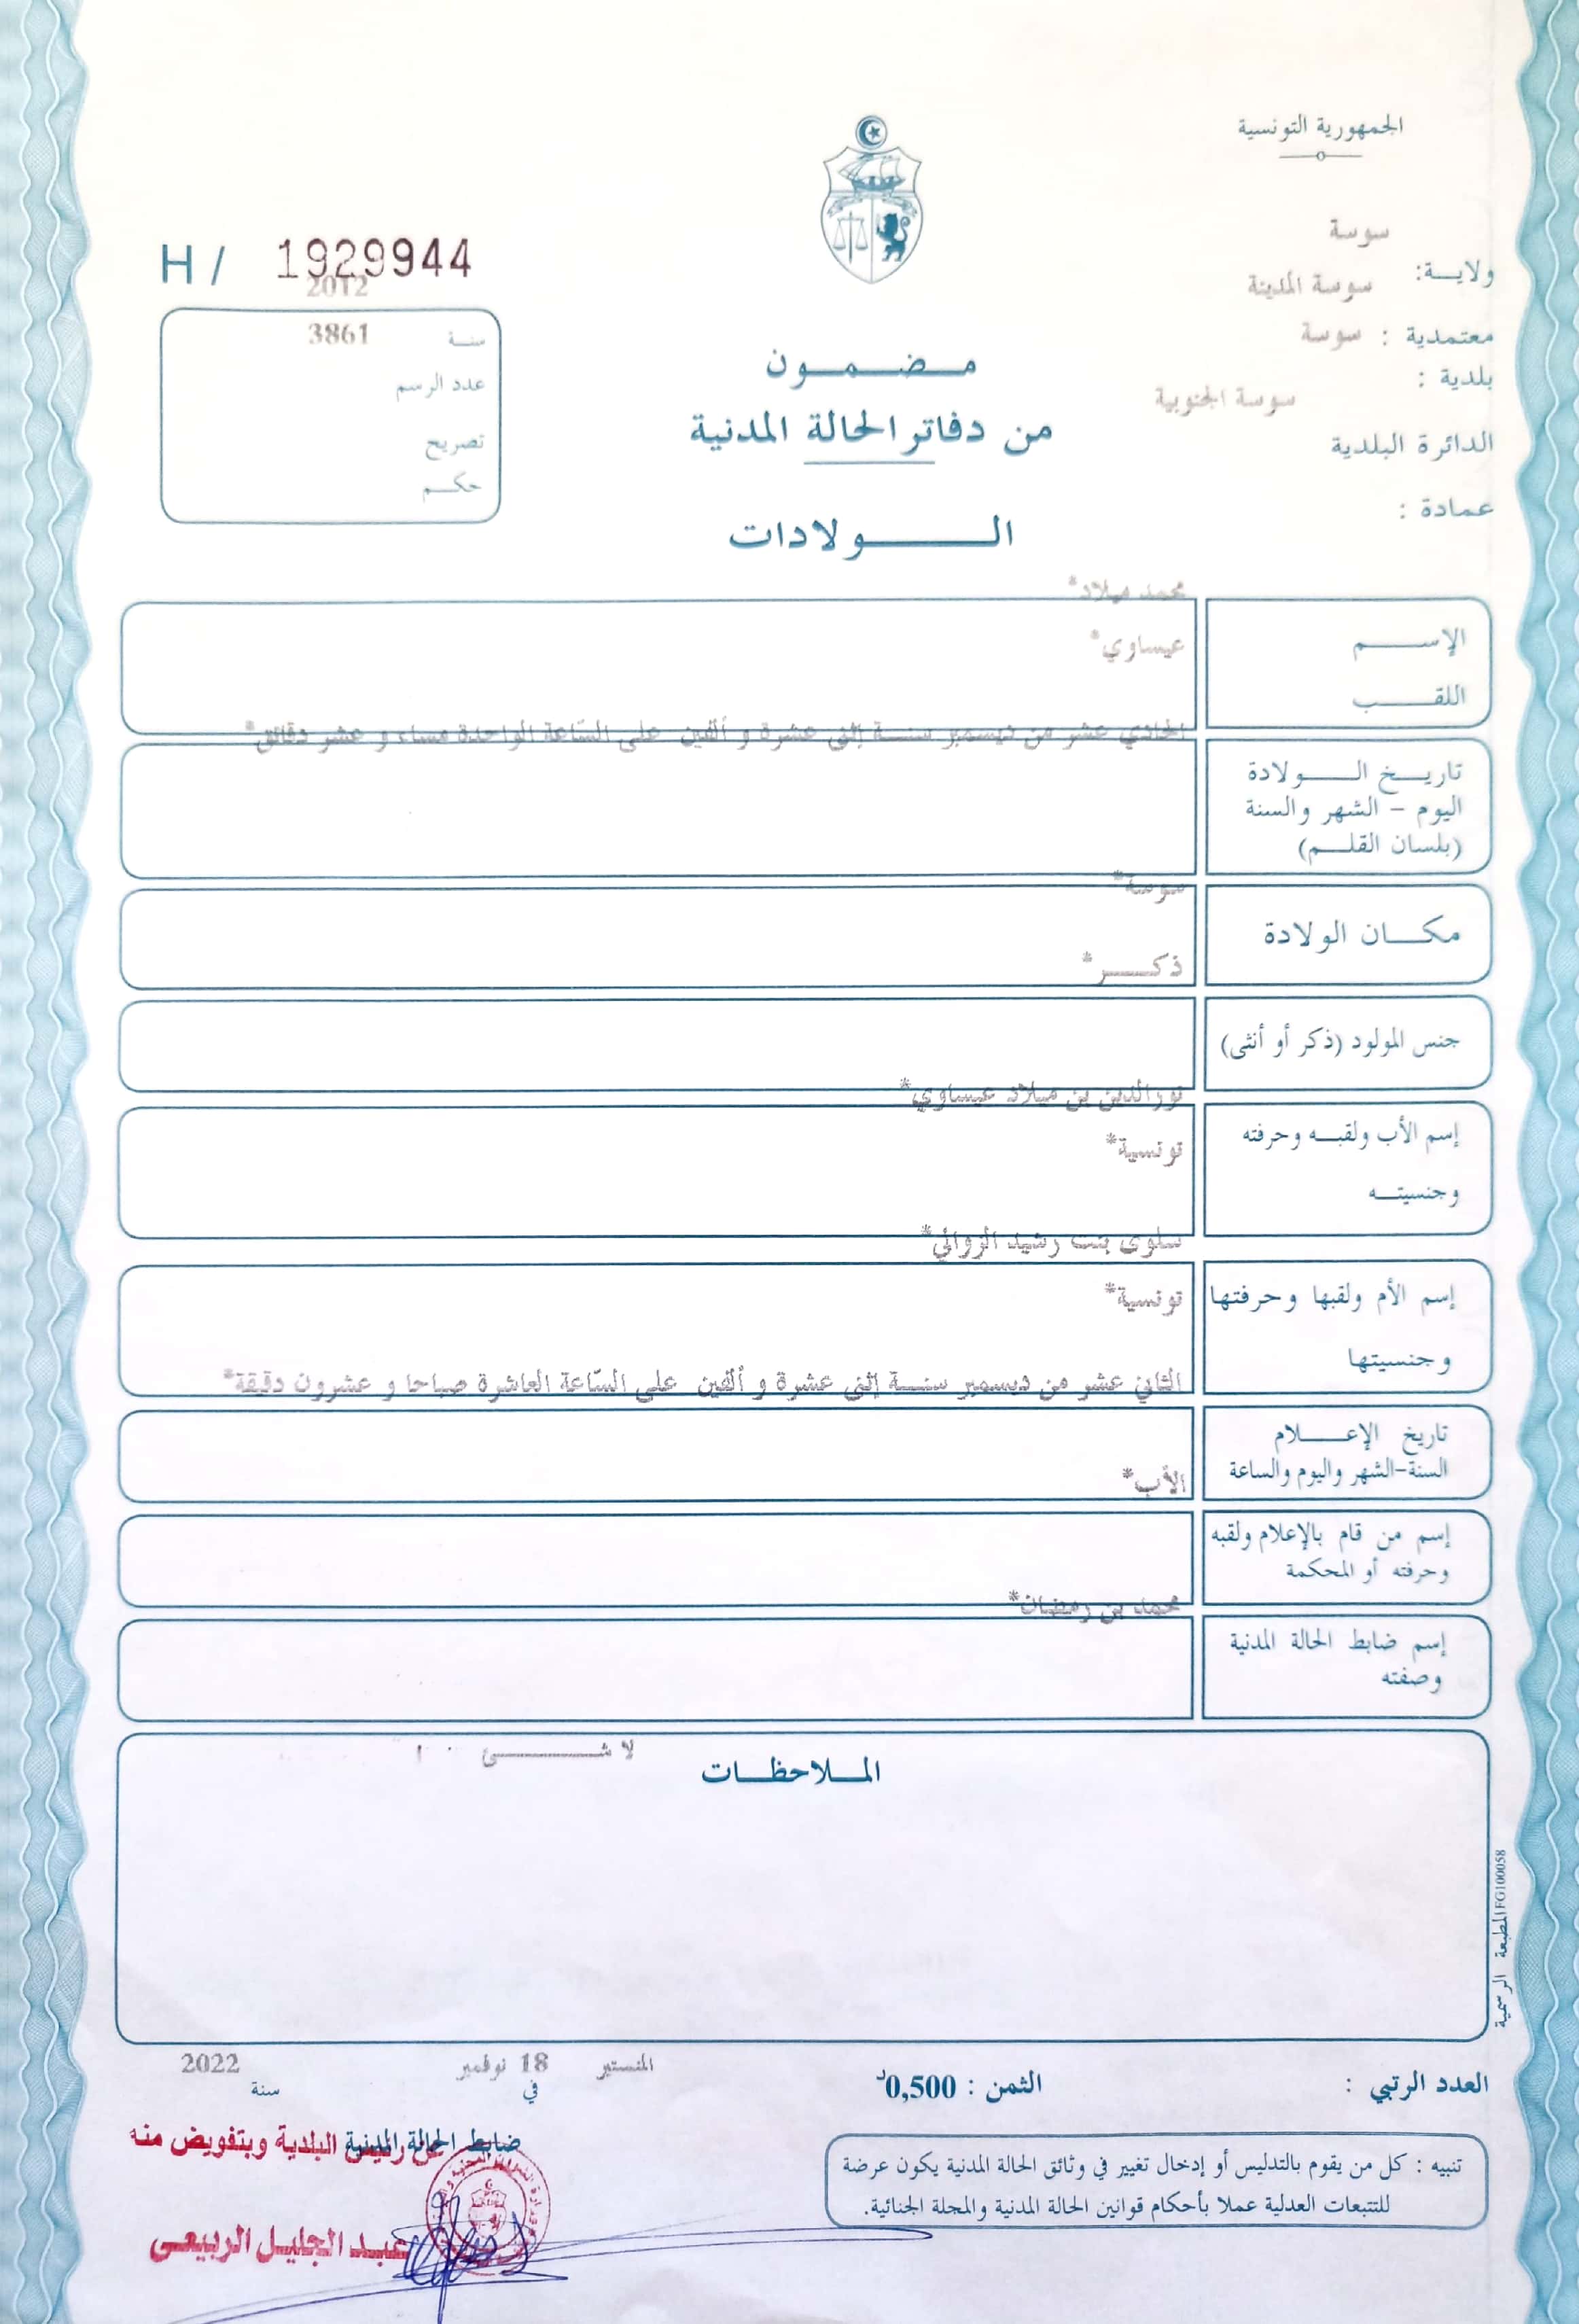 الجمهورية التونسية
سوسة
ولايـة:
سوسة المدينة
معتمدية : سوسة
بلدية :
سوسة الجنوبية
الدائرة البلدية
عمادة :
H / 1929944
2012
سنة 3861
عدد الرسم
تصريح
حكم
مضمون
من دفاتر الحالة المدنية
الولادات
محمد ميلاد*
الإسم
عيساوي*
اللقب
الحادي عشر من ديسمبر سنة إثنى عشرة و ألفين على السّاعة الواحدة مساء و عشر دقائق*
تاريخ الولادة
اليوم - الشهر والسنة
(بلسان القلم)
سوسة*
مكان الولادة
ذكر*
جنس المولود (ذكر أو أنثى)
نورالدين بن ميلاد عيساوي*
إسم الأب ولقبه وحرفته
تونسية*
وجنسيته
سلوى بنت رشيد الزوالي*
إسم الأم ولقبها وحرفتها
تونسية*
وجنسيتها
الثاني عشر من ديسمبر سنة إثنى عشرة و ألفين على السّاعة العاشرة صباحا و عشرون دقيقة*
تاريخ الإعلام
السنة-الشهر واليوم والساعة
الأب*
إسم من قام بالإعلام ولقبه
وحرفته أو المحكمة
محمد بن رمضان*
إسم ضابط الحالة المدنية
وصفته
لا شئ
الملاحظات
المطبعة الرسمية FG100058
المنستير 18 نوفمبر 2022
في سنة
العدد الرتبي :
الثمن : 0,500د
ضابط الحالة المدنية
عن رئيس البلدية وبتفويض منه
عبد الجليل الربيعي
تنبيه : كل من يقوم بالتدليس أو إدخال تغيير في وثائق الحالة المدنية يكون عرضة
للتتبعات العدلية عملا بأحكام قوانين الحالة المدنية والمجلة الجنائية.